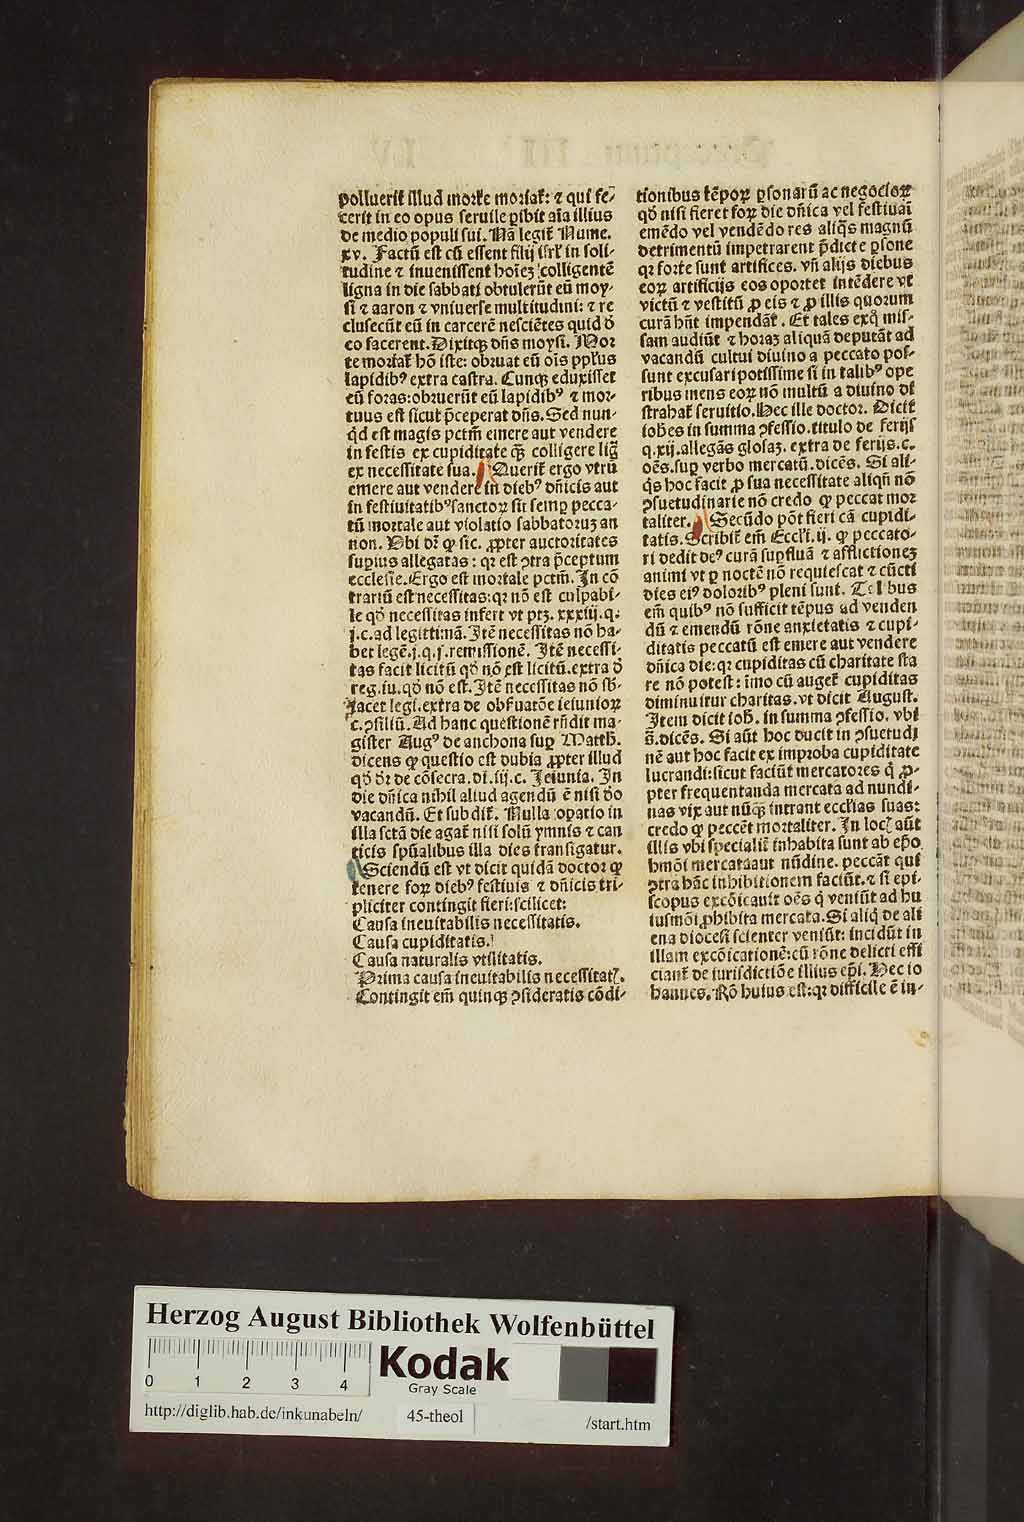 polluerit illud morte moriat᷑: ⁊ qui fe-
cerit in eo opus seruile ꝑibit aĩa illius
de medio populi sui. Nã legit᷑ Nume.
xv. Factũ est cũ essent filij isrl̃ in soli-
tudine ⁊ inuenissent hoĩeꝫ colligentẽ
ligna in die sabbati obtulerũt eũ moy-
si ⁊ aaron ⁊ vniuerse multitudini: ⁊ re
cluserũt eũ in carcerẽ nesciẽtes quid ð
eo facerent. Dixitqꝫ dñs moysi. Mor
te moriat᷑ hõ iste: obruat eũ oĩs ppl̃us
lapidibꝰ extra castra. Cunqꝫ eduxisset
eũ foras: obruerũt eũ lapidibꝰ ⁊ mor-
tuus est sicut p̃ceperat dñs. Sed nun-
qd̓ est magis pctm̃ emere aut vendere
in festis ex cupiditate qꝫ̃ colligere lig̃
ex necessitate sua. Querit᷑ ergo vtrũ
emere aut vendere in diebꝰ dñicis aut
in festiuitatibꝰ sanctoꝝ sit semꝑ pecca-
tũ mortale aut violatio sabbatoruꝫ an
non. Vbi dr̃ ꝙ sic. ꝓpter auctoritates
suꝑius allegatas: qꝛ est ꝯtra p̃ceptum
ecclesie. Ergo est mortale pctm̃. In cõ
trariũ est necessitas: qꝛ nõ est culpabi-
le qð necessitas infert vt ptꝫ. xxxiij. q.
j. c. ad legittimã. Itẽ necessitas nõ ha-
bet legẽ. j. q. j. remissionẽ. Itẽ necessi-
tas facit licitũ qð nõ est licitũ. extra ð
reg. iu. qð nõ est. Itẽ necessitas nõ sb̃-
iacet legi. extra de obẜuatõe ieiunioꝝ
c. ꝯsiliũ. Ad hanc questionẽ rñdit ma-
gister Augꝰ de anchona suꝑ Matth̃.
dicens ꝙ questio est dubia ꝓpter illud
qð dr̃ de cõsecra. di. iij. c. Ieiunia. In
die dñica nihil aliud agendũ ẽ nisi ðo
vacandũ. Et subdit᷑. Nulla oꝑatio in
illa sctã die agat᷑ nisi solũ ymnis ⁊ can
ticis spũalibus illa dies transigatur.
Sciendũ est vt dicit quidã doctor ꝙ
tenere foꝝ diebꝰ festiuis ⁊ dñicis tri-
pliciter contingit fieri: scilicet:
Causa ineuitabilis necessitatis.
Causa cupiditatis.
Causa naturalis vtilitatis.
Prima causa ineuitabilis necessitat᷑.
Contingit em̃ quinqꝫ ꝯsideratis cõdi-
tionibus tẽpoꝝ ꝑsonarũ ac negocioꝝ
qð nisi fieret foꝝ die dñica vel festiuaĩ
emẽdo vel vendẽdo res aliq̃s magnũ
detrimentũ impetrarent p̃dicte ꝑsone
qꝛ forte sunt artifices. vñ alijs diebus
eoꝝ artificijs eos oportet intẽdere vt
victũ ⁊ vestitũ ꝓ eis ⁊ ꝓ illis quorum
curã hñt impendãt. Et tales exq̃ mis-
sam audiũt ⁊ horaꝫ aliquã deputãt ad
vacandũ cultui diuino a peccato pos-
sunt excusari potissime si in talibꝰ ope
ribus mens eoꝝ nõ multũ a diuino di
strahat᷑ seruitio. Hec ille doctor. Dicit
ioh̃es in summa ꝯfessio. titulo de ferijs
q. xij. allegãs glosaꝫ. extra de ferijs. c.
oẽs. suꝑ verbo mercatũ. dicẽs. Si ali-
q̃s hoc facit ꝓ sua necessitate aliqñ nõ
ꝯsuetudinarie nõ credo ꝙ peccat mor
taliter. Secũdo põt fieri cã cupidi-
tatis. Scribit᷑ em̃ Eccl̃i. ij. ꝙ peccato-
ri dedit deꝰ curã suꝑfluã ⁊ afflictioneꝫ
animi vt ꝑ noctẽ nõ requiescat ⁊ cũcti
dies eiꝰ doloribꝰ pleni sunt. Talibus
em̃ quibꝰ nõ sufficit tẽpus ad venden
dũ ⁊ emendũ rõne anxietatis ⁊ cupi-
ditatis peccatũ est emere aut vendere
dñica die: qꝛ cupiditas cũ charitate sta
re nõ potest: ĩmo cũ auget᷑ cupiditas
diminuitur charitas. vt dicit August.
Item dicit ioh̃. in summa ꝯfessio. vbi
s̃. dicẽs. Si aũt hoc ducit in ꝯsuetudi
nẽ aut hoc facit ex improba cupiditate
lucrandi: sicut faciũt mercatores q̃ ꝓ-
pter frequentanda mercata ad nundi-
nas vix aut nũqꝫ intrant eccl̃ias suas:
credo ꝙ peccẽt mortaliter. In loc᷑ aũt
illis vbi specialit᷑ inhabita sunt ab ep̃o
hmõi mercata aut nũdine. peccãt qui
ꝯtra hãc inhibitionem faciũt. ⁊ si epi-
scopus excõicauit oẽs q̃ veniũt ad hu
iusmõi ꝓhibita mercata. Si aliq̃ de ali
ena diocesi scienter veniũt: incidũt in
illam excõicationẽ: cũ rõne delicti effi
ciant᷑ de iurisdictiõe illius ep̃i. Hec io
hannes. Rõ huius est: qꝛ difficile ẽ in-
Herzog August Bibliothek Wolfenbüttel
0 1 2 3 4
Kodak
Gray Scale
http://diglib.hab.de/inkunabeln/ 45-theol /start.htm